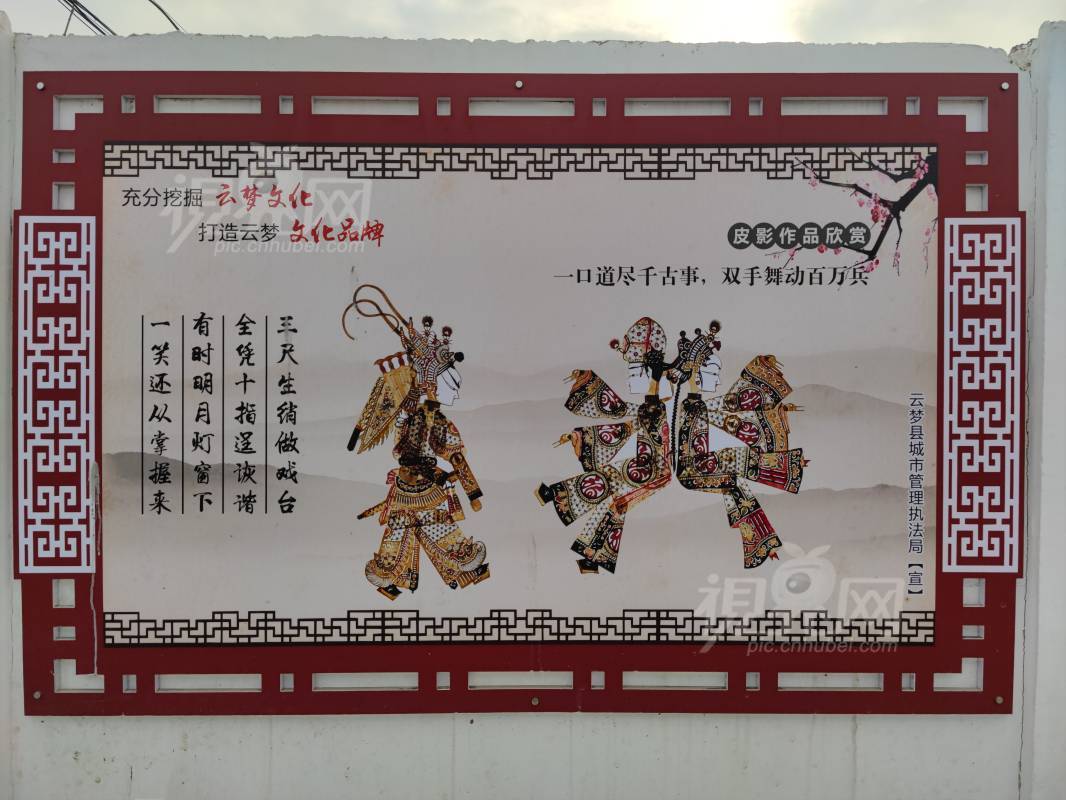 充分挖掘 云梦文化
打造云梦 文化品牌
皮影作品欣赏
一口道尽千古事，双手舞动百万兵
三尺生绡做戏台
全凭十指逞诙谐
有时明月灯窗下
一笑还从掌握来
云梦县城市管理执法局【宣】
视界网
pic.cnhubei.com
视界网
pic.cnhubei.com